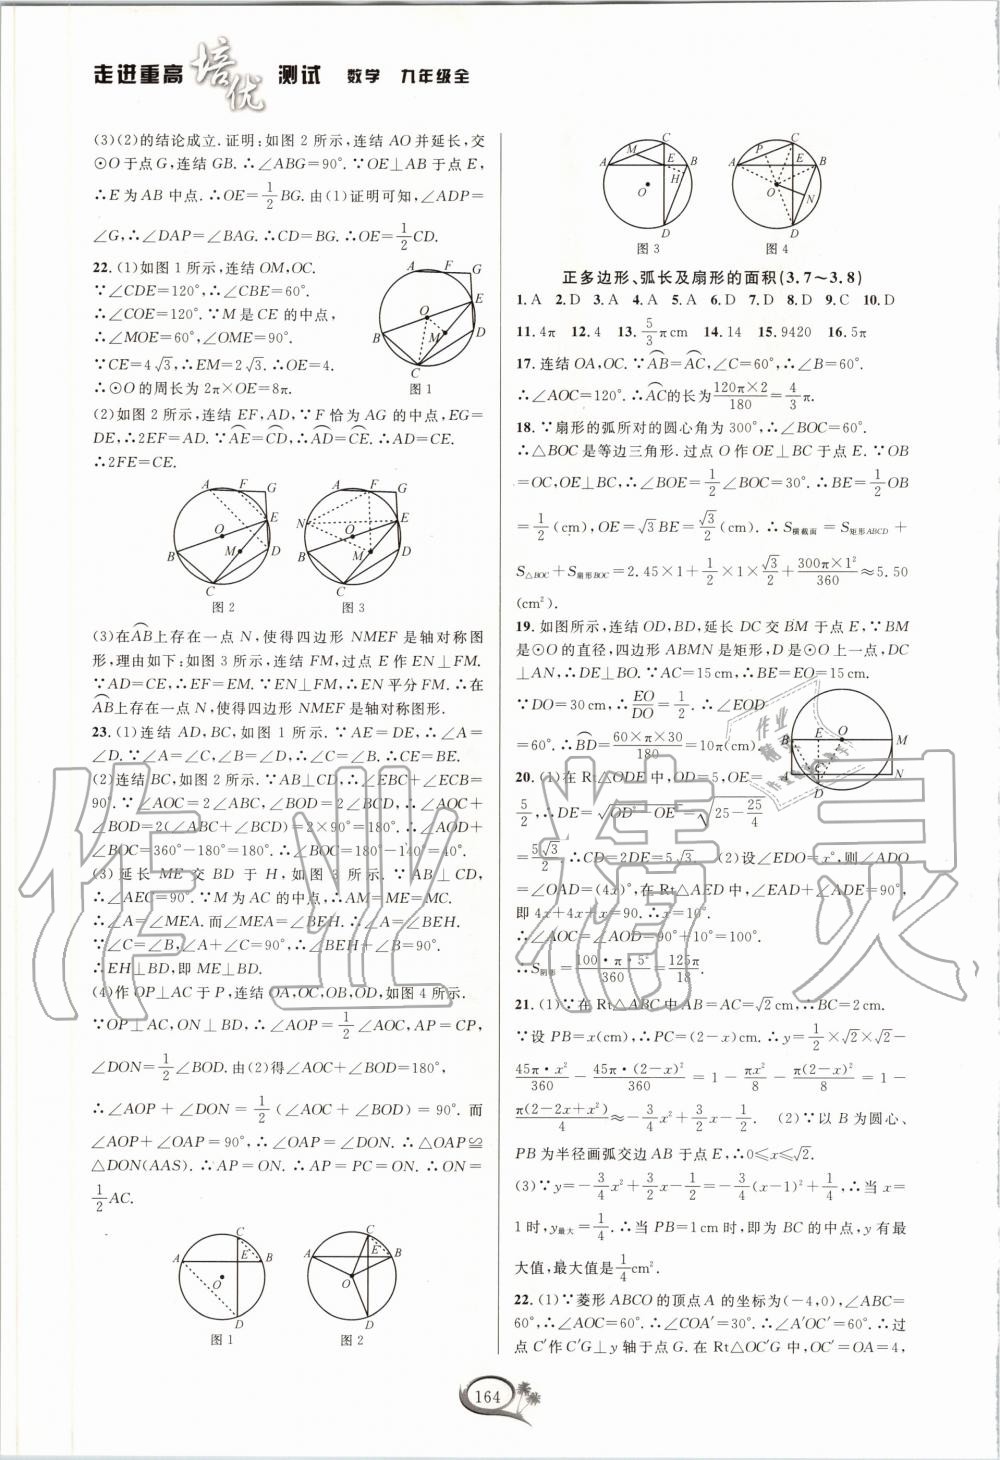 走进重高 培优 测试 数学 九年级全
(3)(2)的结论成立.证明:如图 2 所示,连结 AO 并延长,交
⊙O 于点 G,连结 GB.∴∠ABG=90°.∵OE⊥AB 于点 E,
∴E 为 AB 中点.∴OE=1/2 BG.由(1)证明可知,∠ADP=
∠G,∴∠DAP=∠BAG.∴CD=BG.∴OE=1/2 CD.
22.(1)如图 1 所示,连结 OM,OC.
∵∠CDE=120°,∴∠CBE=60°.
∴∠COE=120°.∵M 是 CE 的中点,
∴∠MOE=60°,∠OME=90°.
∵CE=4√3,∴EM=2√3.∴OE=4.
∴⊙O 的周长为 2π×OE=8π.
图 1
(2)如图 2 所示,连结 EF,AD,∵F 恰为 AG 的中点,EG=
DE,∴2EF=AD.∵AE⌒=CD⌒,∴AD⌒=CE⌒.∴AD=CE.
∴2FE=CE.
图 2 图 3
(3)在AB⌒上存在一点 N,使得四边形 NMEF 是轴对称图
形,理由如下:如图 3 所示,连结 FM,过点 E 作 EN⊥FM.
∵AD=CE,∴EF=EM.∵EN⊥FM,∴EN 平分 FM.∴在
AB⌒上存在一点 N,使得四边形 NMEF 是轴对称图形.
23.(1)连结 AD,BC,如图 1 所示.∵AE=DE,∴∠A=
∠D.∵∠A=∠C,∠B=∠D,∴∠B=∠C.∴CE=BE.
(2)连结 BC,如图 2 所示.∵AB⊥CD,∴∠EBC+∠ECB=
90°.∵∠AOC=2∠ABC,∠BOD=2∠BCD,∴∠AOC+
∠BOD=2(∠ABC+∠BCD)=2×90°=180°.∴∠AOD+
∠BOC=360°-180°=180°.∴∠BOD=180°-140°=40°.
(3)延长 ME 交 BD 于 H,如图 3 所示.∵AB⊥CD,
∴∠AEC=90°.∵M 为 AC 的中点,∴AM=ME=MC.
∴∠A=∠MEA.而∠MEA=∠BEH.∴∠A=∠BEH.
∵∠C=∠B,∠A+∠C=90°,∴∠BEH+∠B=90°.
∴EH⊥BD,即 ME⊥BD.
(4)作 OP⊥AC 于 P,连结 OA,OC,OB,OD,如图 4 所示.
∵OP⊥AC,ON⊥BD,∴∠AOP=1/2∠AOC,AP=CP,
∠DON=1/2∠BOD.由(2)得∠AOC+∠BOD=180°,
∴∠AOP+∠DON=1/2(∠AOC+∠BOD)=90°.而
∠AOP+∠OAP=90°,∴∠OAP=∠DON.∴△OAP≌
△DON(AAS).∴AP=ON.∴AP=ON.∴AP=ON=
1/2 AC.
图 1 图 2
图 3 图 4
正多边形、弧长及扇形的面积(3.7~3.8)
1.A 2.D 3.A 4.A 5.A 6.D 7.D 8.D 9.C 10.D
11.4π 12.4 13.5/3 π cm 14.14 15.9420 16.5π
17.连结 OA,OC.∵AB⌒=AC⌒,∠C=60°,∴∠B=60°.
∴∠AOC=120°.∴AC⌒的长为(120π×2)/180=4/3 π.
18.∵扇形的弧所对的圆心角为 300°,∴∠BOC=60°.
∴△BOC 是等边三角形.过点 O 作 OE⊥BC 于点 E.∵OB
=OC,OE⊥BC,∴∠BOE=1/2∠BOC=30°.∴BE=1/2 OB
=1/2(cm),OE=√3 BE=√3/2(cm).∴S横截面=S矩形ABCD+
S△BOC+S扇形BOC=2.45×1+1/2×1×√3/2+(300π×1²)/360≈5.50
(cm²).
19.如图所示,连结 OD,BD,延长 DC 交 BM 于点 E,∵BM
是⊙O 的直径,四边形 ABMN 是矩形,D 是⊙O 上一点,DC
⊥AN,∴DE⊥BO.∵AC=15 cm,∴BE=EO=15 cm.
∵DO=30 cm,∴EO/DO=1/2.∴∠EOD
=60°.∴BD⌒=(60×π×30)/180=10π(cm).
20.(1)在 Rt△ODE 中,OD=5,OE=
5/2,∴DE=√(OD²-OE²)=√(25-25/4)
=5√3/2.∴CD=2DE=5√3. (2)设∠EDO=x°,则∠ADO
=∠OAD=(4x)°,在 Rt△AED 中,∠EAD+∠ADE=90°,
即 4x+4x+x=90.∴x=10°.
∴∠AOC=∠AOD=90°+10°=100°.
∴S阴影=(100·π·5²)/360=125π/18.
21.(1)∵在 Rt△ABC 中 AB=AC=√2 cm,∴BC=2 cm.
∵设 PB=x(cm),∴PC=(2-x)cm.∴y=1/2×√2×√2-
45π·x²/360-45π·(2-x)²/360=1-πx²/8-π(2-x)²/8=1-
π(2-2x+x²)/4≈-3/4 x²+3/2 x-1/2. (2)∵以 B 为圆心、
PB 为半径画弧交边 AB 于点 F,∴0≤x≤√2.
(3)∵y=-3/4 x²+3/2 x-1/2=-3/4(x-1)²+1/4,∴当 x=
1 时,y最大=1/4.∴当 PB=1 cm 时,即为 BC 的中点,y 有最
大值,最大值是1/4 cm².
22.(1)∵菱形 ABCO 的顶点 A 的坐标为(-4,0),∠ABC=
60°,∴∠AOC=60°.∴∠COA′=30°.∴∠A′OC′=60°.∴过
点 C′作 C′G⊥y 轴于点 G.在 Rt△OC′G 中,OC′=OA=4,
164
作业精灵